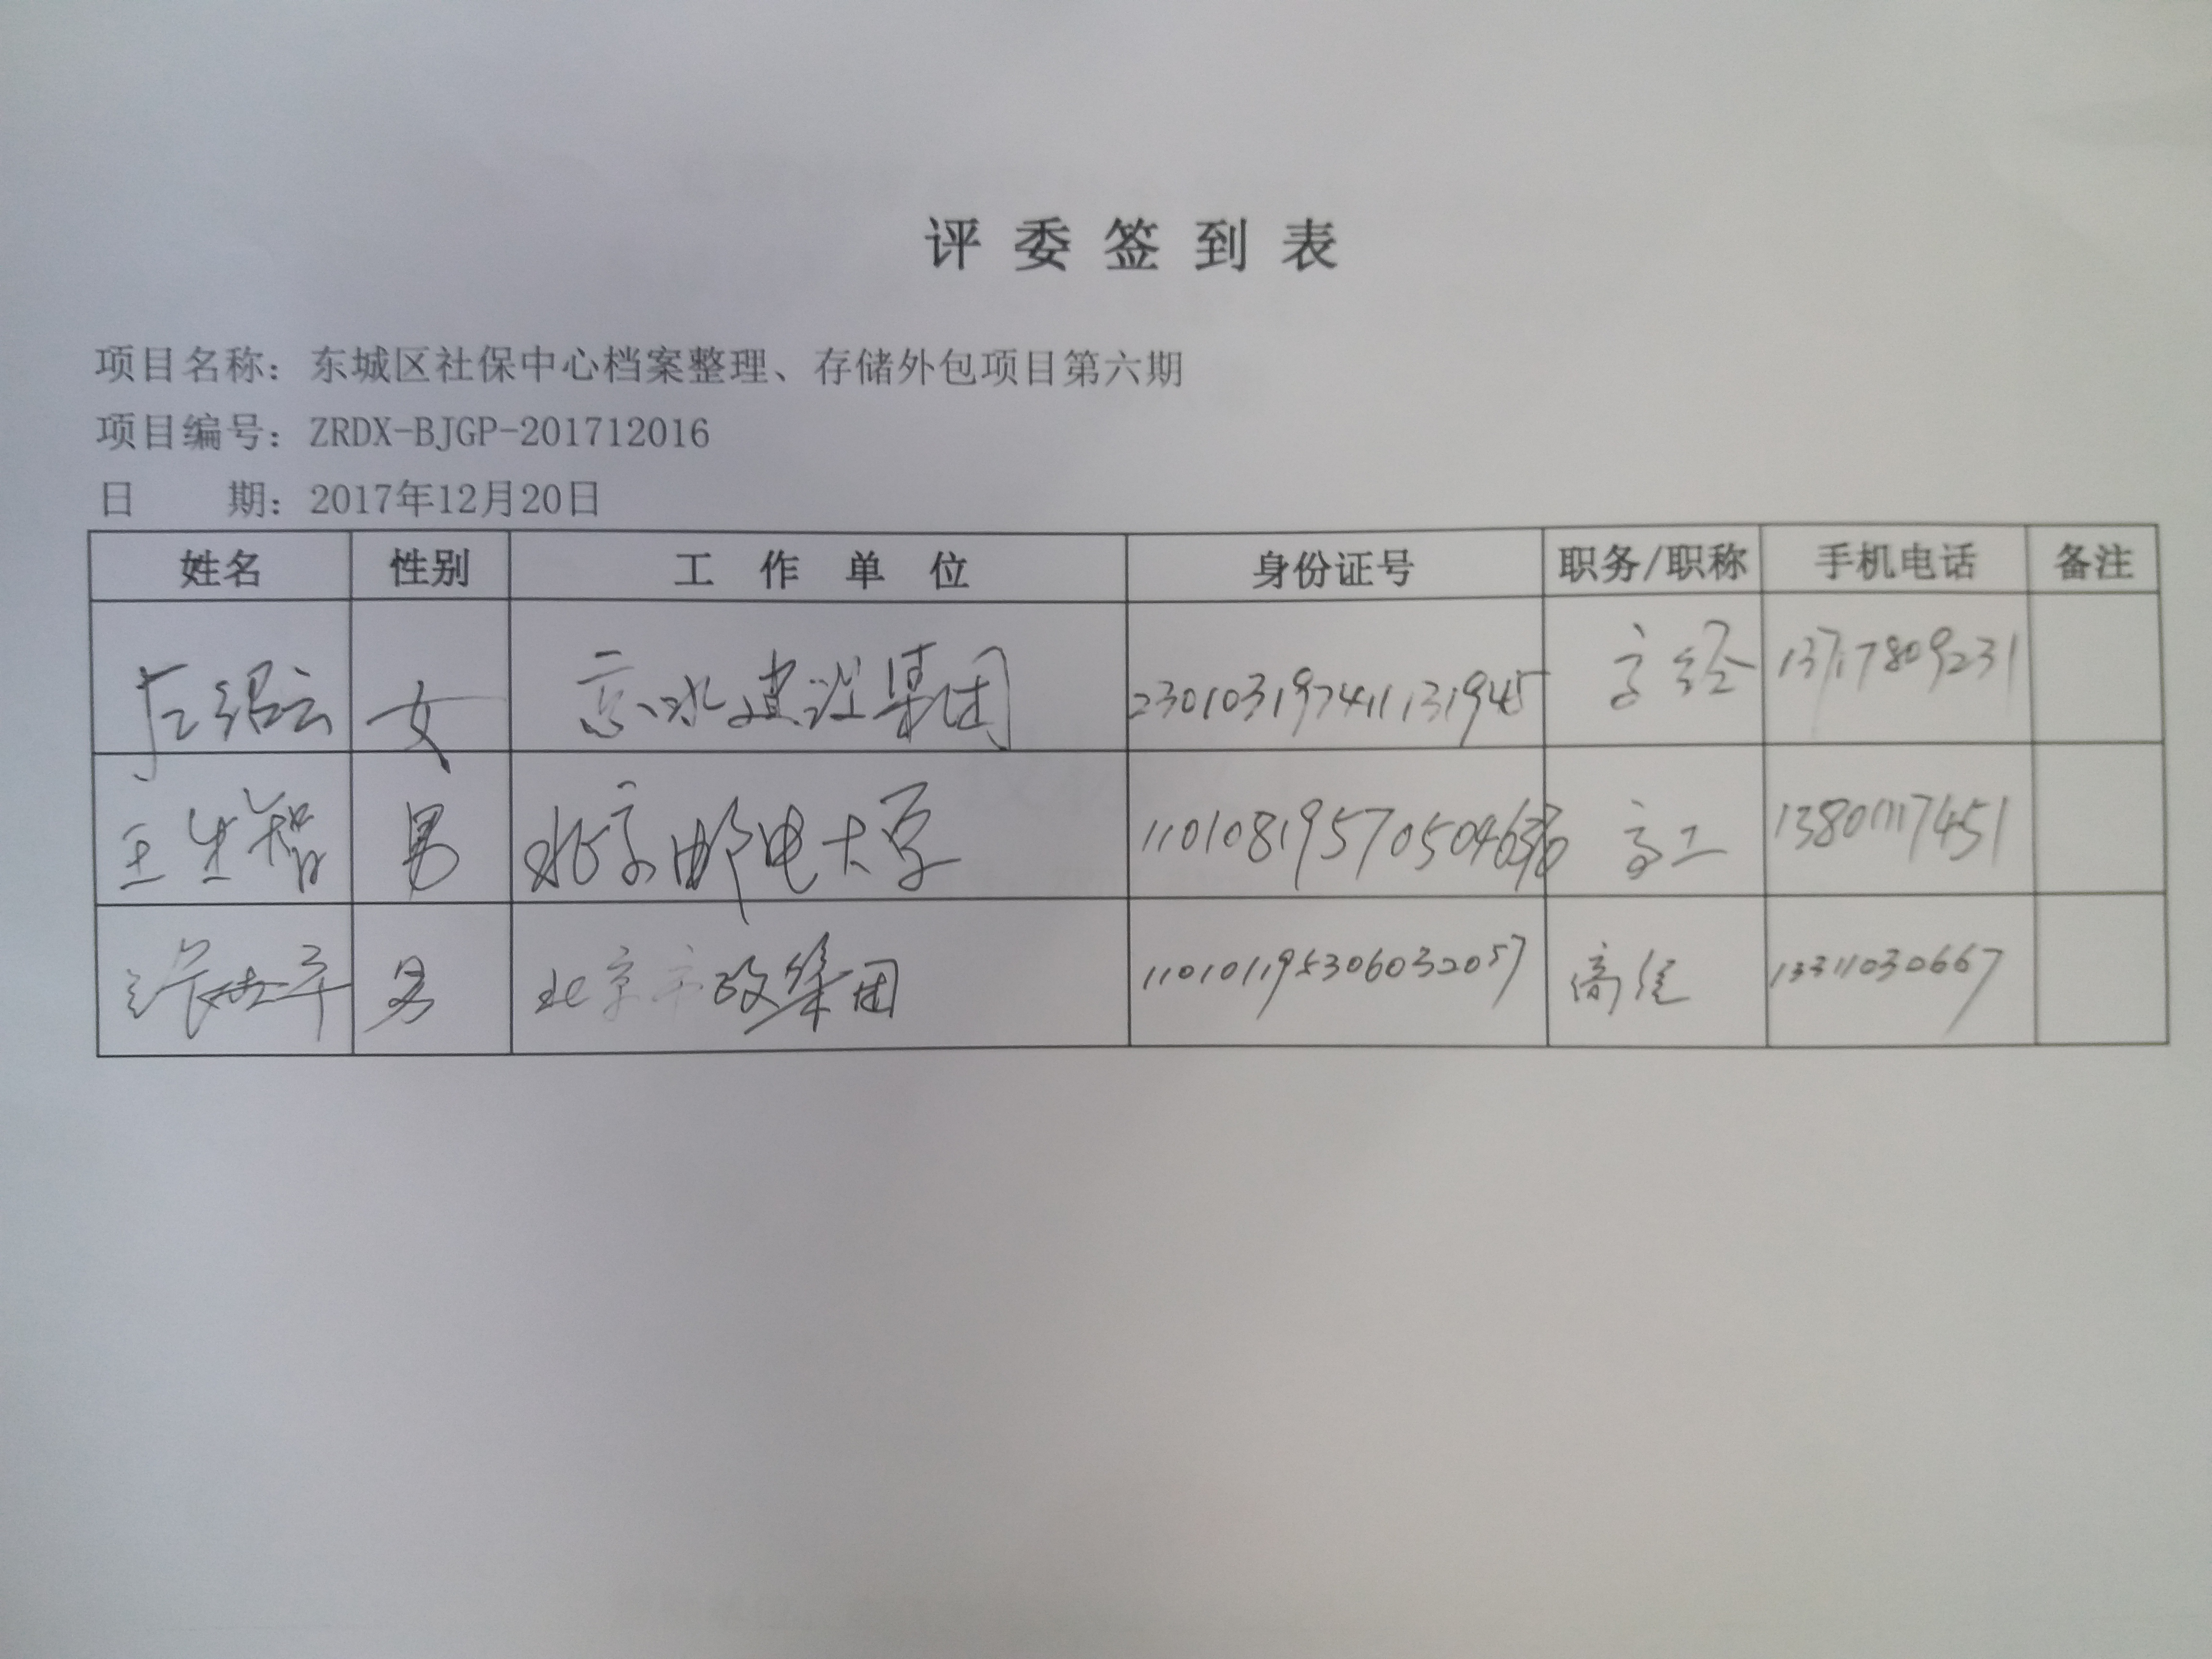 评委签到表
项目名称：东城区社保中心档案整理、存储外包项目第六期
项目编号：ZRDX-BJGP-201712016
日 期：2017年12月20日
姓名 性别 工作单位 身份证号 职务/职称 手机电话 备注
女 京水建设集团 230103197411131945 高经 13717809231
王生智 男 北京邮电大学 高工 13801117451
男 北京市政集团 110101195306032057 高经 13311030667